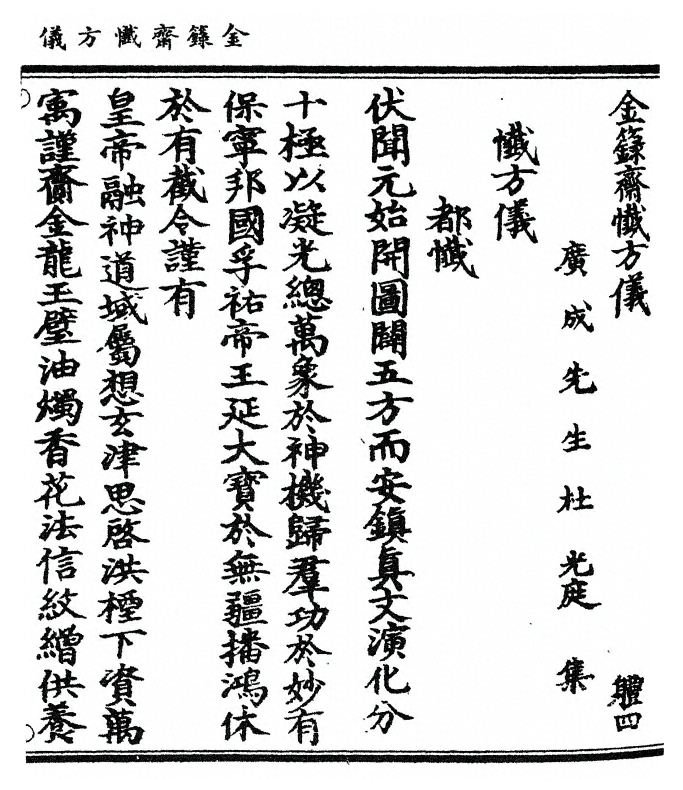 金籙齋懺方儀
金籙齋懺方儀 體四
廣成先生杜光庭集
懺方儀
都懺
伏聞元始開圖闢五方而安鎮真文演化分
十極以凝光總萬象於神機歸羣功於妙有
保寧邦國孚祐帝王延大寶於無疆播鴻休
於有截令謹有
皇帝融神道域屬想玄津思啓洪㮄下資萬
寓謹齎金龍玉璧油燭香花法信紋繒供養